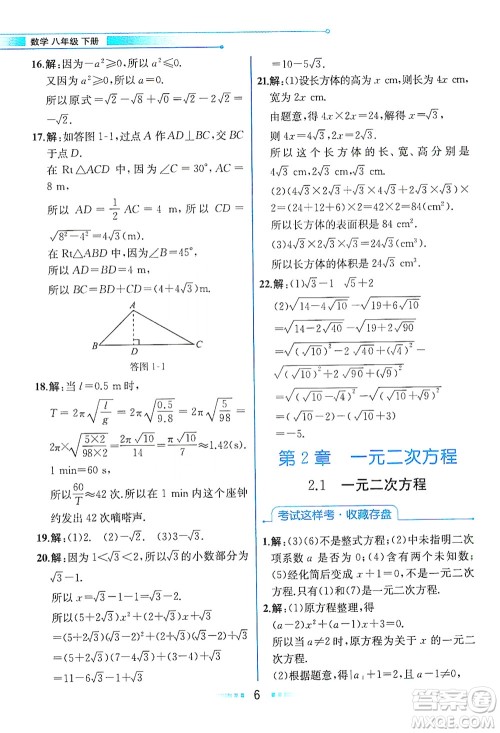 数学 八年级 下册
16.解:因为-a²≥0,所以a²≤0.
又因为a²≥0,所以a²=0.
所以原式=√4-√9+√1-√0=2-3+1
=0.
17.解:如答图1-1,过点A作AD⊥BC,交BC
于点D.
在Rt△ADC中,因为∠C=30°,AC=
8 m,
所以AD=1/2 AC=4 m,所以CD=
√(8²-4²)=4√3(m).
在Rt△ABD中,因为∠B=45°,
所以BD=AD=4 m,
所以BC=BD+DC=(4+4√3)m.
A
B D C
答图1-1
18.解:当l=0.5 m时,
T=2π√(l/g)=2π√(0.5/9.8)
=2π×√((5×2)/(98×2))=2π×√10/14≈1.42(s).
1 min=60 s,
所以60/T≈42,所以在1 min内,该座钟
约发出42次嘀嗒声.
19.解:(1)√5 (2)5
20.解:因为1<√3<2,所以√3的小数部分为
√3-1.
所以x=√3-1.
所以(5+2√3)x²+(√3+1)x-2√3
=(5+2√3)(√3-1)²+(√3+1)(√3-
1)-2√3
=(5+2√3)(4-2√3)+2-2√3
=10-5√3.
21.解:(1)设长方体的高为x cm,则长为4x cm,
宽为2x cm.
由题意,得4x×2x=24,解得x=√3,
则4x=4√3,2x=2√3.
所以长方体的长、宽、高分别是
4√3 cm,2√3 cm,√3 cm.
(2)(4√3×2√3+4√3×√3+2√3×√3)
×2=(24+12+6)×2=84(cm²).
所以长方体的表面积是84 cm².
(3)4√3×2√3×√3=24√3(cm³).
所以长方体的体积是24√3 cm³.
22.解:(1)√3-√2 √5+√2
(2)√(14-4√10)-√(19+6√10)
=√(14-2√40)-√(19+2√90)
=√((√10)²-2√40+2²)-
√((√10)²+2√90+3²)
=√((√10-2)²)-√((√10+3)²)
=√10-2-(√10+3)
=√10-2-√10-3
=-5.
第2章 一元二次方程
2.1 一元二次方程
考试这样考·收藏存盘
解:(3)(6)不是整式方程;(2)中未指明二次
项系数a不为0;(4)中含有两个未知数;
(5)经化简后为x+1=0,不是一元二次方
程.只有(1)和(7)是一元二次方程.
1.解:(1)原方程整理,得
(a-1)x²+x-1=0.
因为a≠1,所以a-1≠0,
所以原方程是关于x的一元二次方程.
6
答案圈